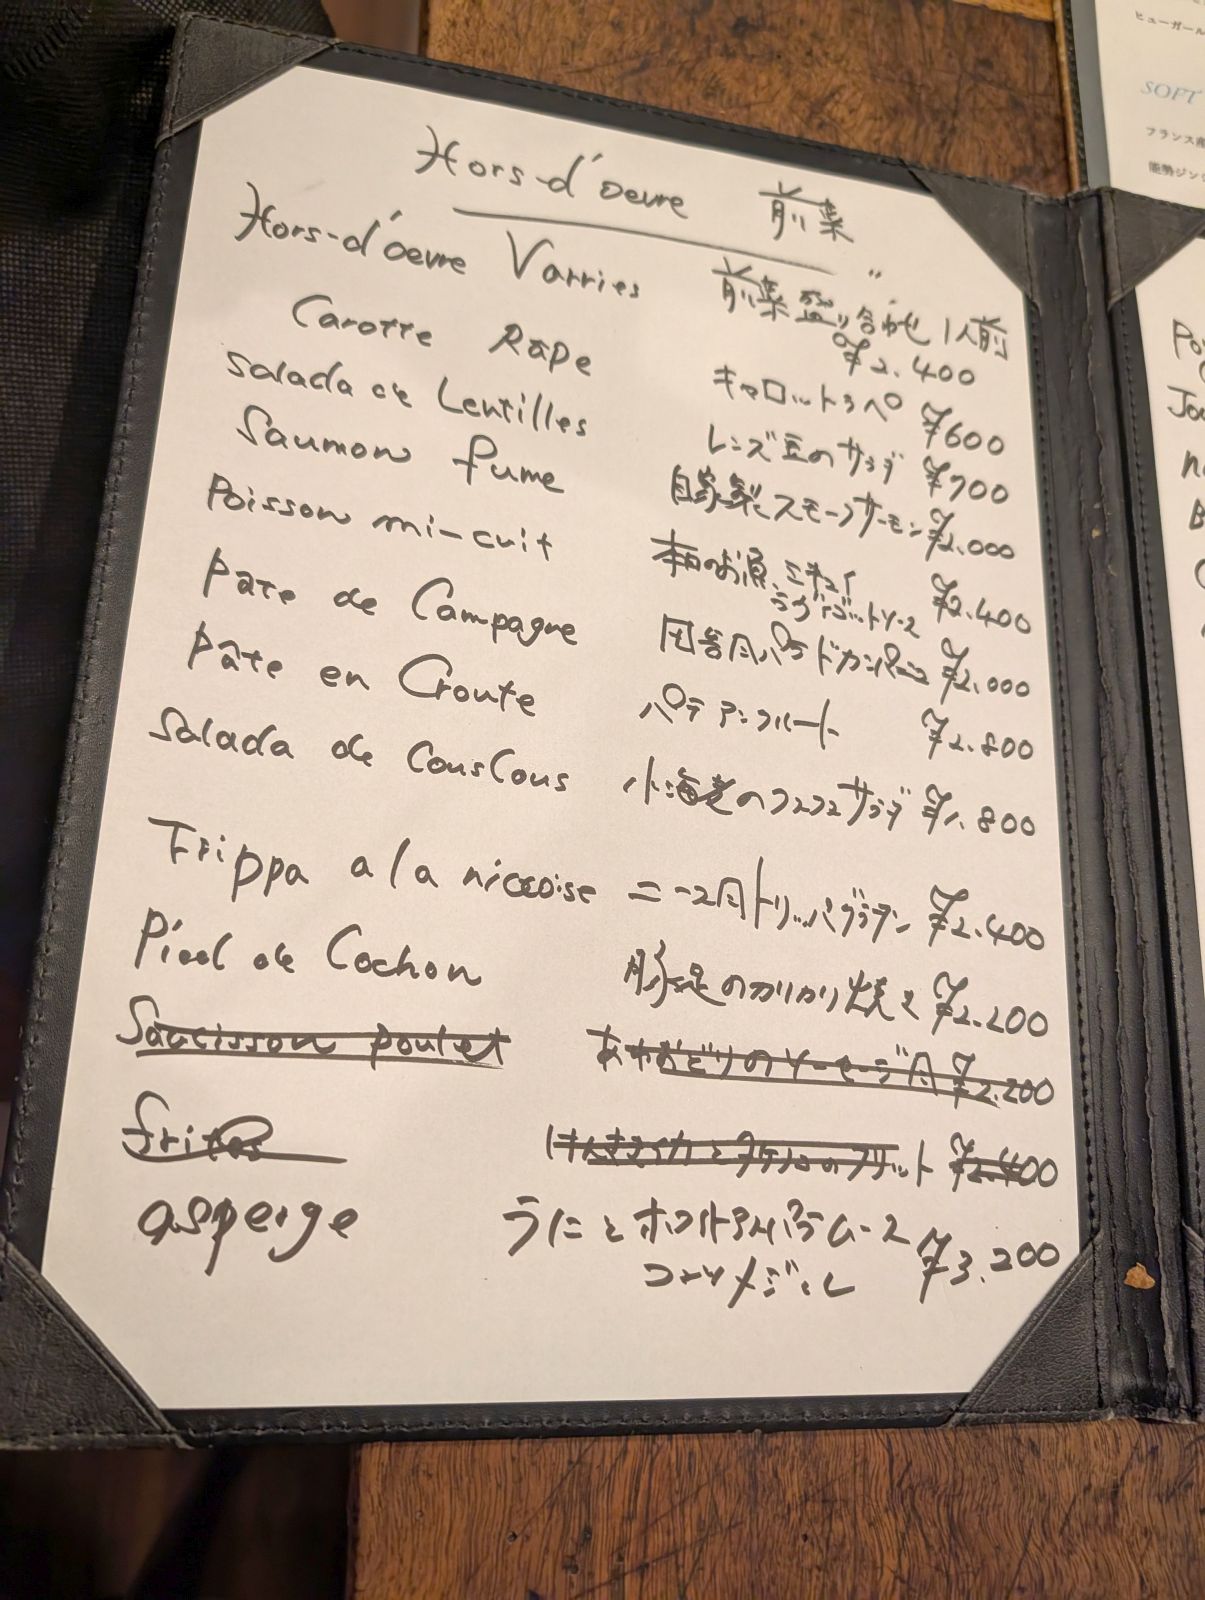 Hors-d'oevre 前菜
Hors-d'oevre Varries 前菜盛り合わせ 1人前
¥2.400
Carotte Râpe キャロットラペ ¥600
Salada de Lentilles レンズ豆のサラダ ¥700
Saumon fume 自家製スモークサーモン ¥2.000
Poisson mi-cuit 本日のお魚、ミキュイ ¥2.400
ラヴィゴットソース
Pâte de Campagne 田舎風パテドカンパーニュ ¥2.000
Pâte en Croute パテアンクルート ¥2.800
Salada de CousCous 小海老のクスクスサラダ ¥1.800
Trippa a la niccoise ニース風トリッパグラタン ¥2.400
Pieol de Cochon 豚足のカリカリ焼き ¥2.200
Saucisson poulet のソーセージ風 ¥2.200
frites のフリット ¥2.400
asperge うにとホワイトアスパラムース ¥3.200
コンソメジュレ
ヒューガール
SOFT
フランス産
能勢ジン